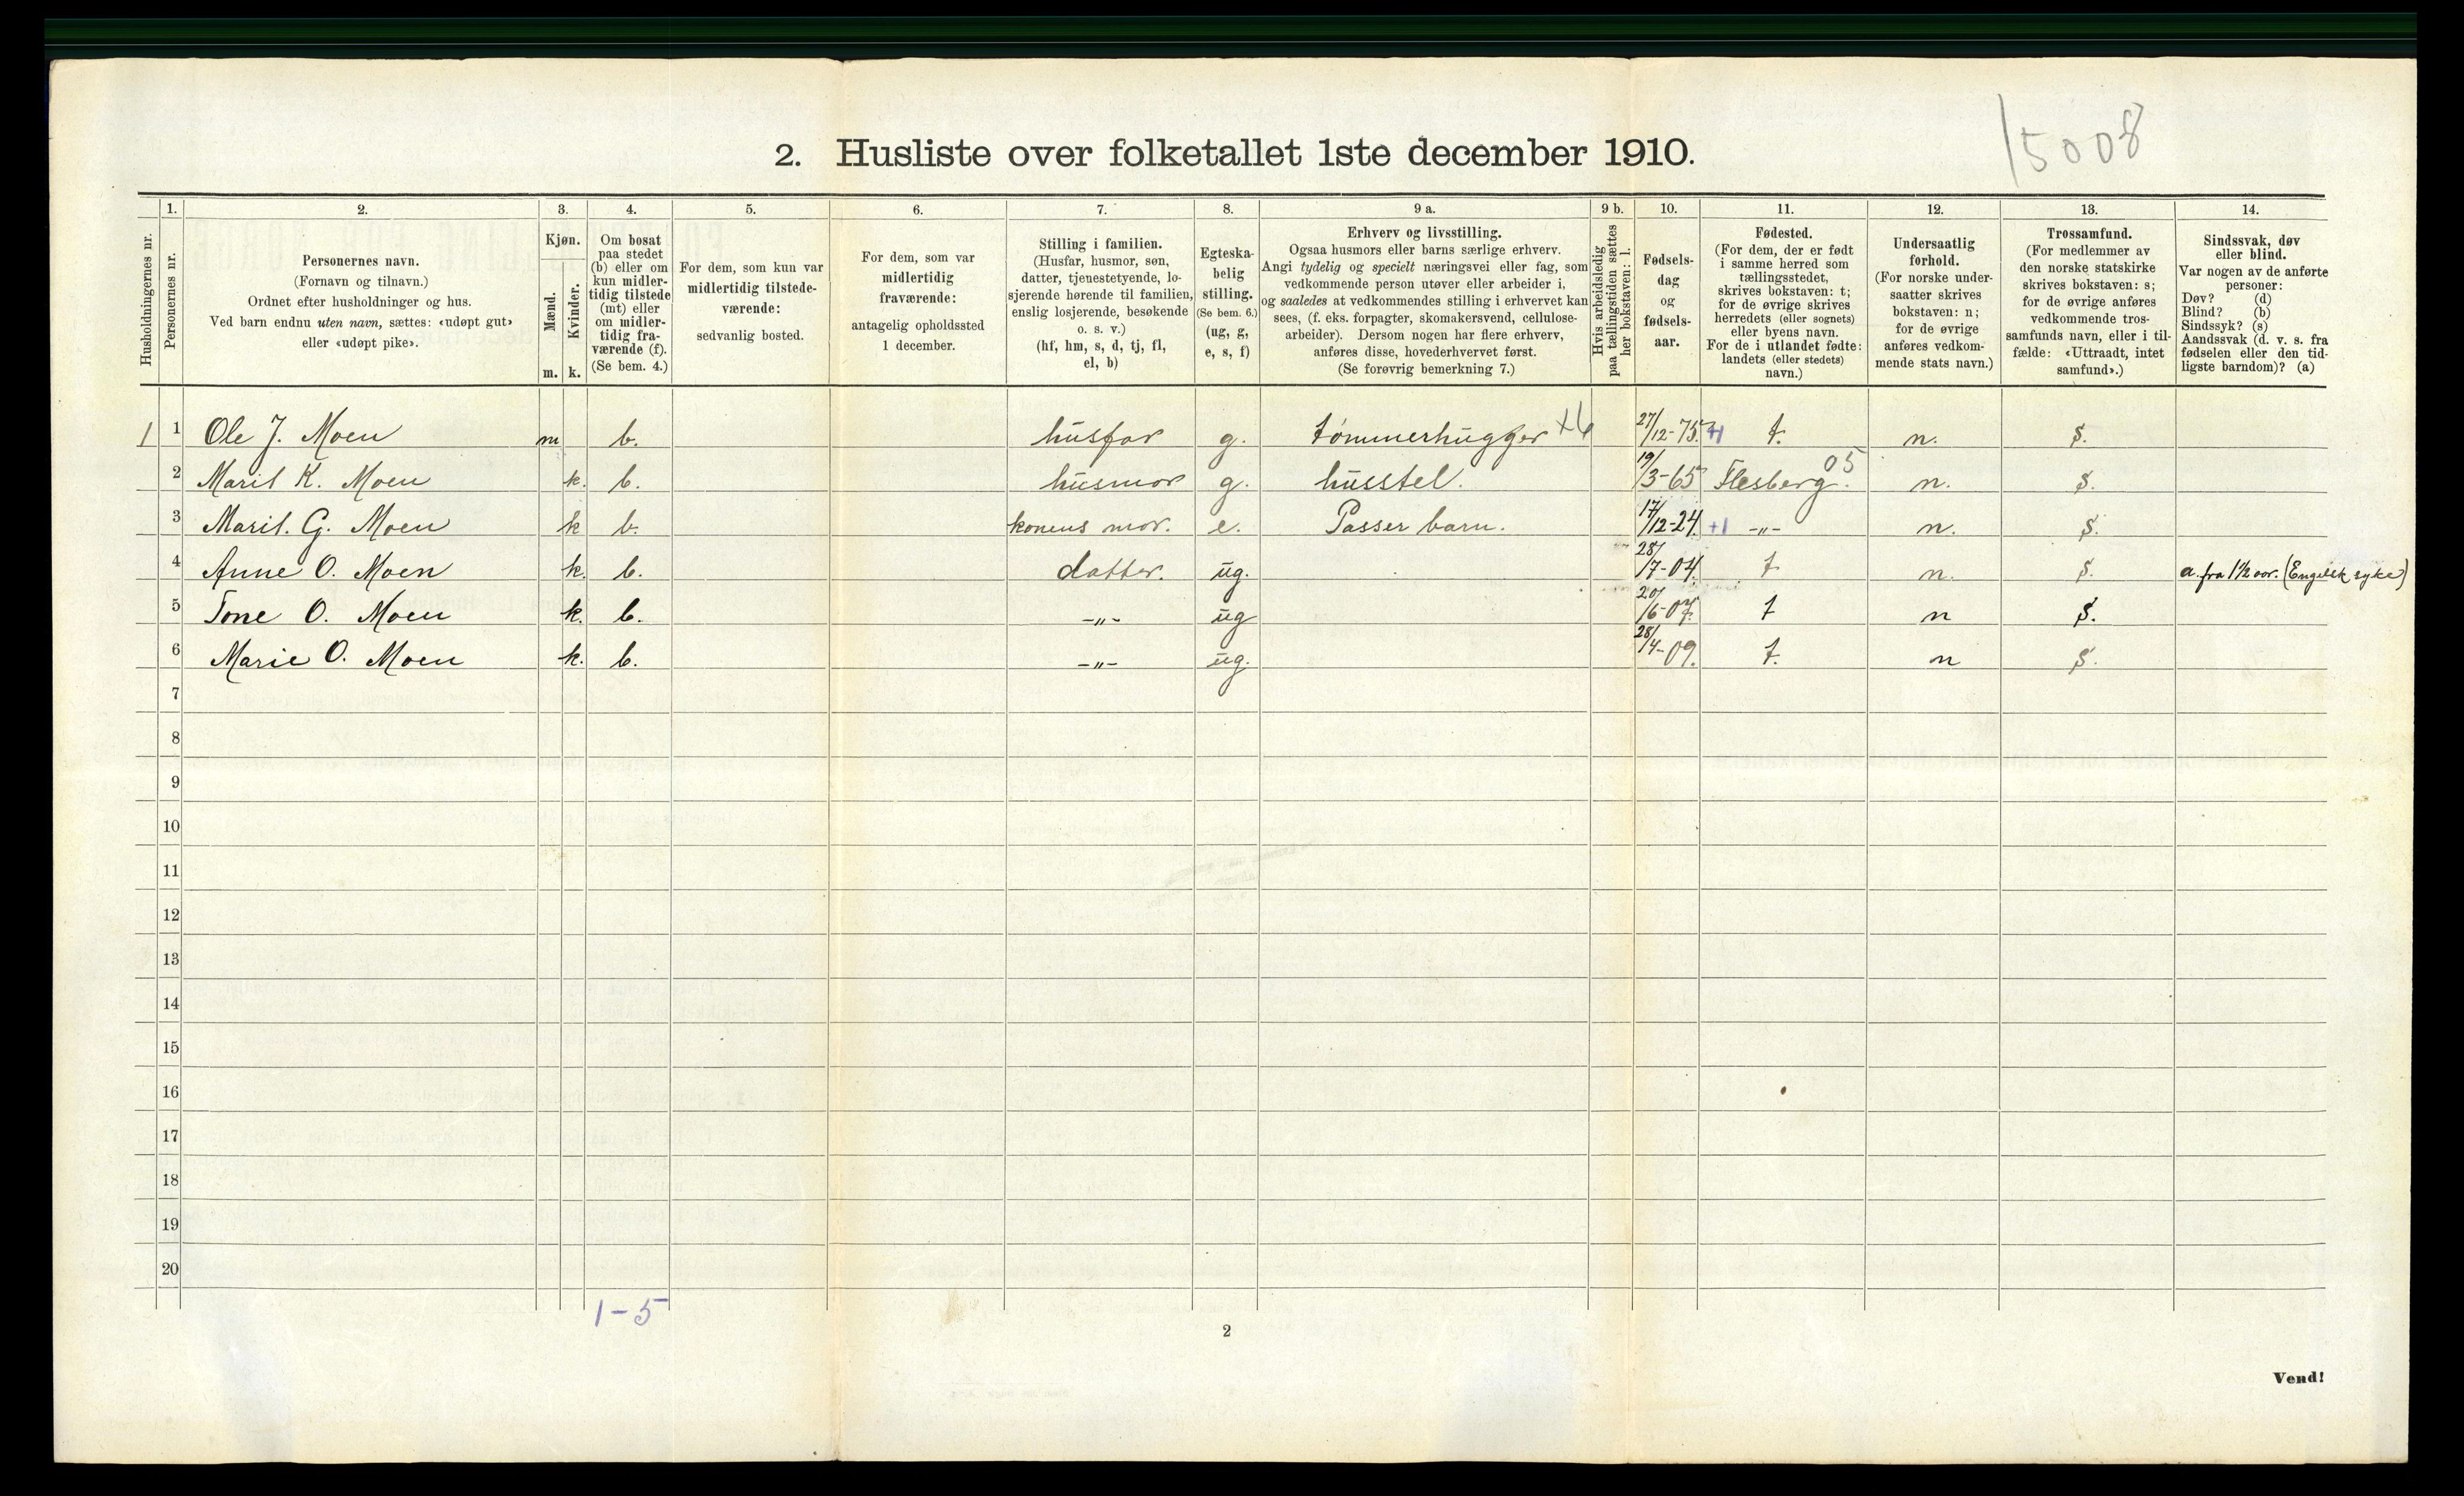 15008
2. Husliste over folketallet 1ste december 1910.
Husholdningernes nr.
1.
Personernes nr.
2.
Personernes navn.
(Fornavn og tilnavn.)
Ordnet efter husholdninger og hus.
Ved barn endnu uten navn, sættes: «udøpt gut»
eller «udøpt pike».
3.
Kjøn.
Mænd.
Kvinder.
m. k.
4.
Om bosat
paa stedet
(b) eller om
kun midler-
tidig tilstede
(mt) eller
om midler-
tidig fra-
værende (f).
(Se bem. 4.)
5.
For dem, som kun var
midlertidig tilstede-
værende:
sedvanlig bosted.
6.
For dem, som var
midlertidig
fraværende:
antagelig opholdssted
1 december.
7.
Stilling i familien.
(Husfar, husmor, søn,
datter, tjenestetyende, lo-
sjerende hørende til familien,
enslig losjerende, besøkende
o. s. v.)
(hf, hm, s, d, tj, fl,
el, b)
8.
Egteska-
belig
stilling.
(Se bem. 6.)
(ug, g,
e, s, f)
9 a.
Erhverv og livsstilling.
Ogsaa husmors eller barns særlige erhverv.
Angi tydelig og specielt næringsvei eller fag, som
vedkommende person utøver eller arbeider i,
og saaledes at vedkommendes stilling i erhvervet kan
sees, (f. eks. forpagter, skomakersvend, cellulose-
arbeider). Dersom nogen har flere erhverv,
anføres disse, hovederhvervet først.
(Se forøvrig bemerkning 7.)
9 b.
Hvis arbeidsledig
paa tællingstiden sættes
her bokstaven: l.
10.
Fødsels-
dag
og
fødsels-
aar.
11.
Fødested.
(For dem, der er født
i samme herred som
tællingsstedet,
skrives bokstaven: t;
for de øvrige skrives
herredets (eller sognets)
eller byens navn.
For de i utlandet fødte:
landets (eller stedets)
navn.)
12.
Undersaatlig
forhold.
(For norske under-
saatter skrives
bokstaven: n;
for de øvrige
anføres vedkom-
mende stats navn.)
13.
Trossamfund.
(For medlemmer av
den norske statskirke
skrives bokstaven: s;
for de øvrige anføres
vedkommende tros-
samfunds navn, eller i til-
fælde: «Uttraadt, intet
samfund».)
14.
Sindssvak, døv
eller blind.
Var nogen av de anførte
personer:
Døv? (d)
Blind? (b)
Sindssyk? (s)
Aandssvak (d. v. s. fra
fødselen eller den tid-
ligste barndom)? (a)
1 1 Ole J. Moen m b. husfar g. tømmerhugger 27/12-75. +1 t. n. s.
2 Marit K. Moen k. b. husmor g. husstel. 19/3-65 Flesberg. 05 n. s.
3 Marit. G. Moen k b. konens mor. e. Passer barn. 17/12-24. +1 -"- n. s.
4 Anne O. Moen k. b. datter. ug. 28/17-04. t n. s. a. fra 1½ aar. (Engelsk syke)
5 Tone O. Moen k. b. -"- ug 20/16-07. t n s.
6 Marie O. Moen k. b. -"- ug. 28/14-09. t. n s.
7
8
9
10
11
12
13
14
15
16
17
18
19
20
1-5
2
Vend!